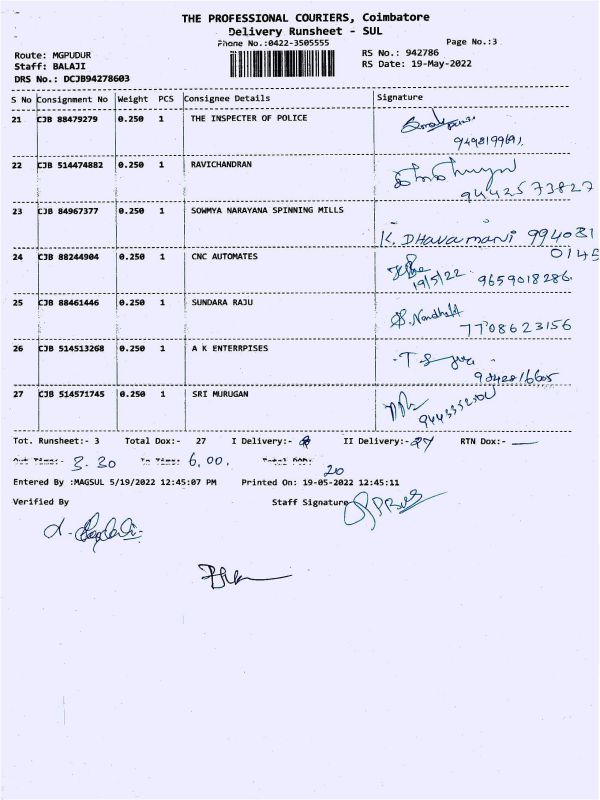 THE PROFESSIONAL COURIERS, Coimbatore
Delivery Runsheet - SUL
Phone No.:0422-3505555
Page No.:3
Route: MGPUDUR
RS No.: 942786
Staff: BALAJI
RS Date: 19-May-2022
DRS No.: DCJB94278603
S No Consignment No Weight PCS Consignee Details Signature
21 CJB 88479279 0.250 1 THE INSPECTER OF POLICE
22 CJB 514474882 0.250 1 RAVICHANDRAN
9442573827
23 CJB 84967377 0.250 1 SOWMYA NARAYANA SPINNING MILLS
K. DHavamani 994081
0145
24 CJB 88244904 0.250 1 CNC AUTOMATES
19/5/22 9659018286
25 CJB 88461446 0.250 1 SUNDARA RAJU
7708623156
26 CJB 514513268 0.250 1 A K ENTERRPISES
27 CJB 514571745 0.250 1 SRI MURUGAN
Tot. Runsheet:- 3 Total Dox:- 27 I Delivery:- II Delivery:- 27 RTN Dox:-
Out Time:- 3.30 In Time: 6.00.
20
Entered By :MAGSUL 5/19/2022 12:45:07 PM Printed On: 19-05-2022 12:45:11
Verified By Staff Signature